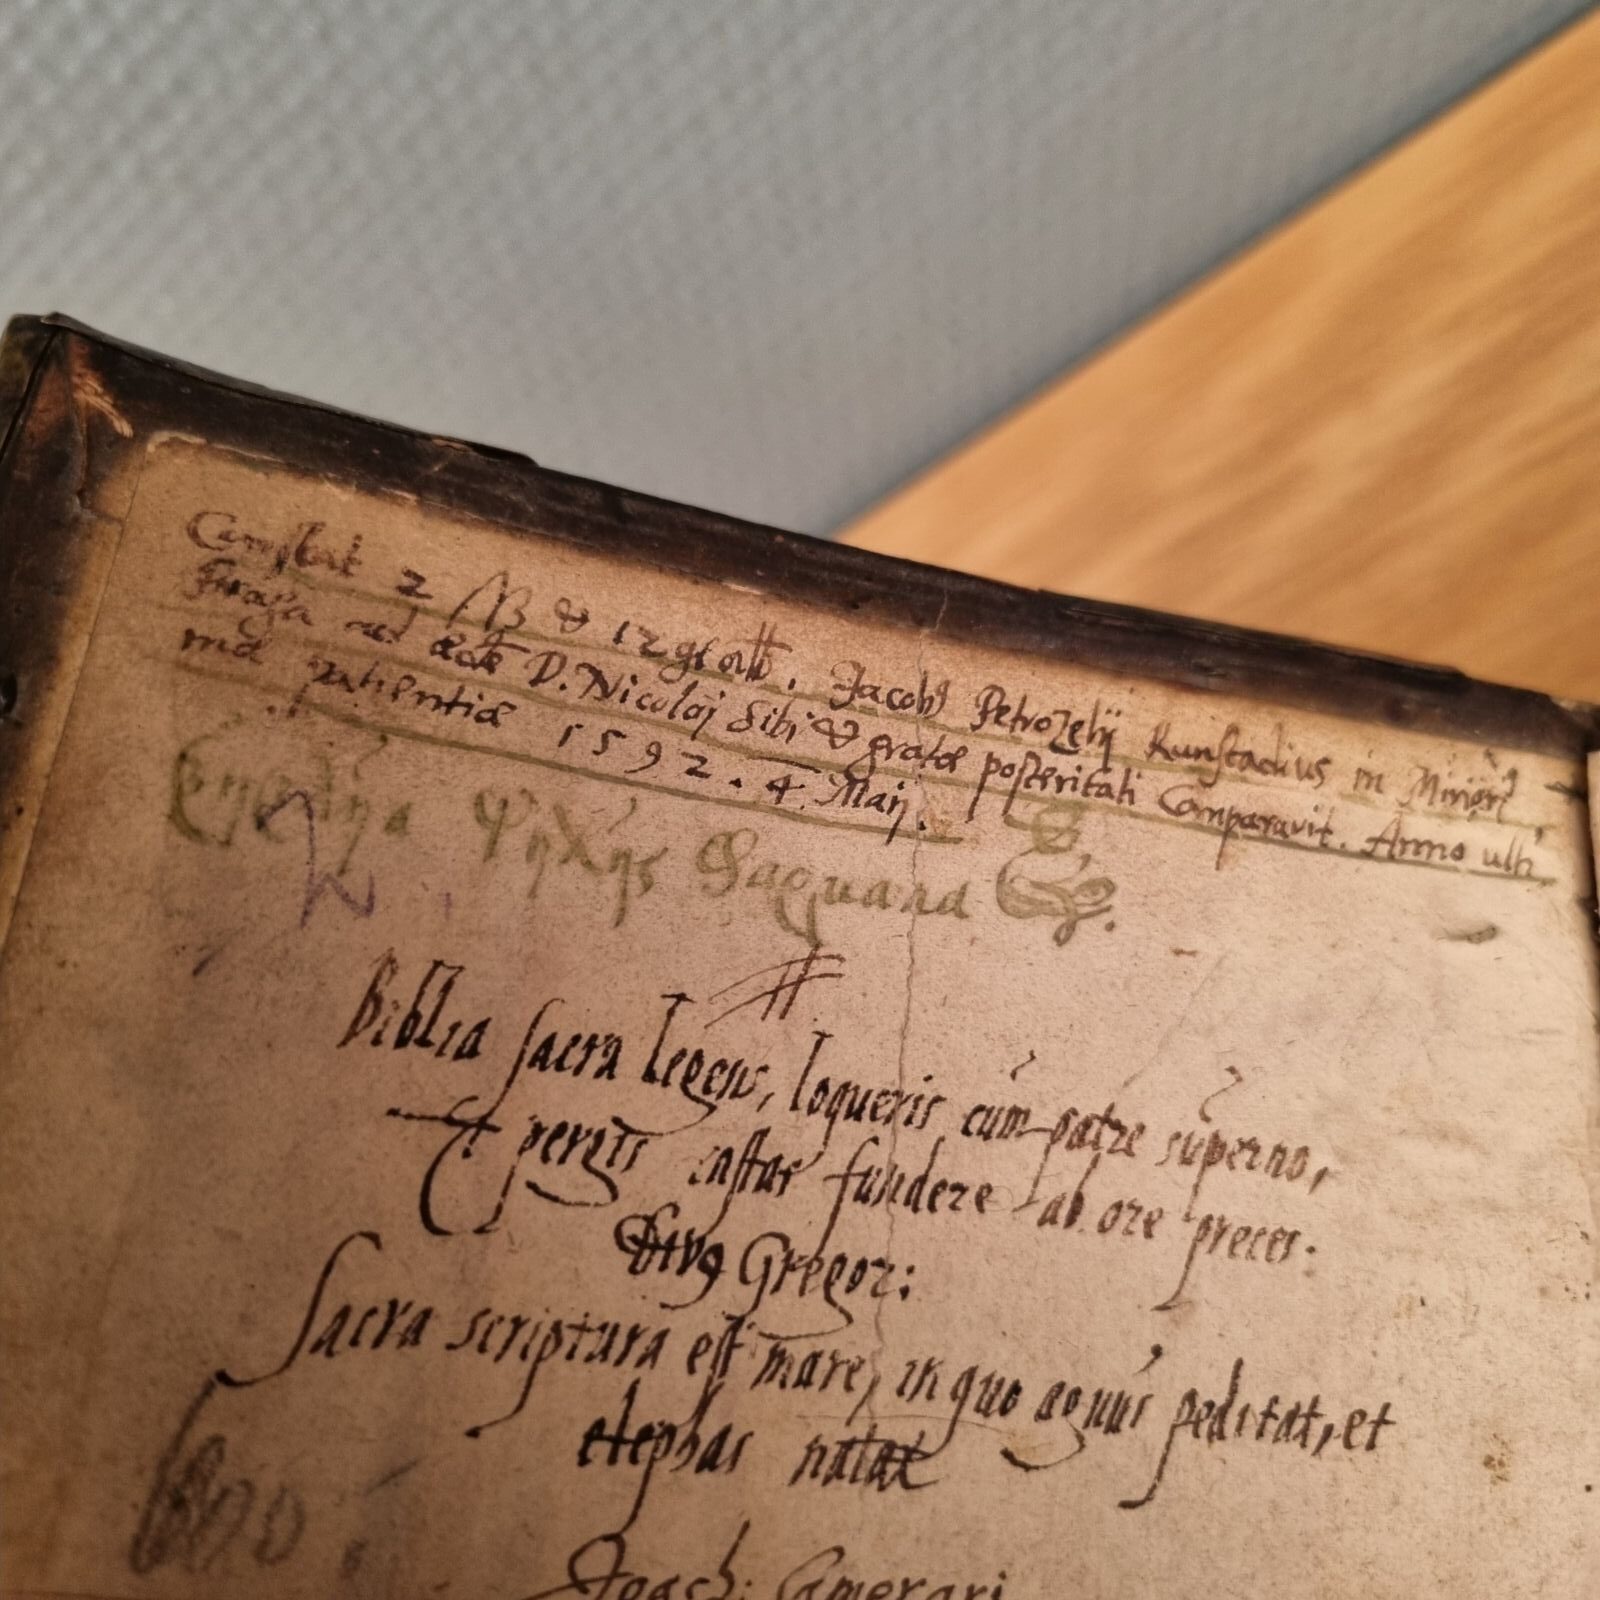 Constat 2 ß & 12 gr. Jacobꝰ Petrozelij Kunstadius in Minori
Praga ad D. Nicolai Sibi & gratæ posteritati Comparavit. Anno ulti
mæ patientiæ 1592. 4 Maij.
Daquana
Biblia sacra legens, loqueris cum patre superno,
Et pergis instar fundere ab ore preces.
Divꝰ Gregor:
Sacra scriptura est mare, in quo agnus peditat, et
elephas natat
Joach: Camerari